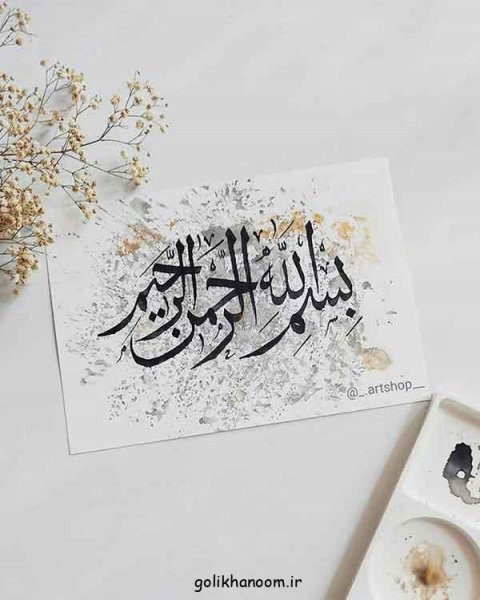 بِسْمِ اللَّهِ الرَّحْمَنِ الرَّحِيمِ
@_.artshop__
golikhanoom.ir